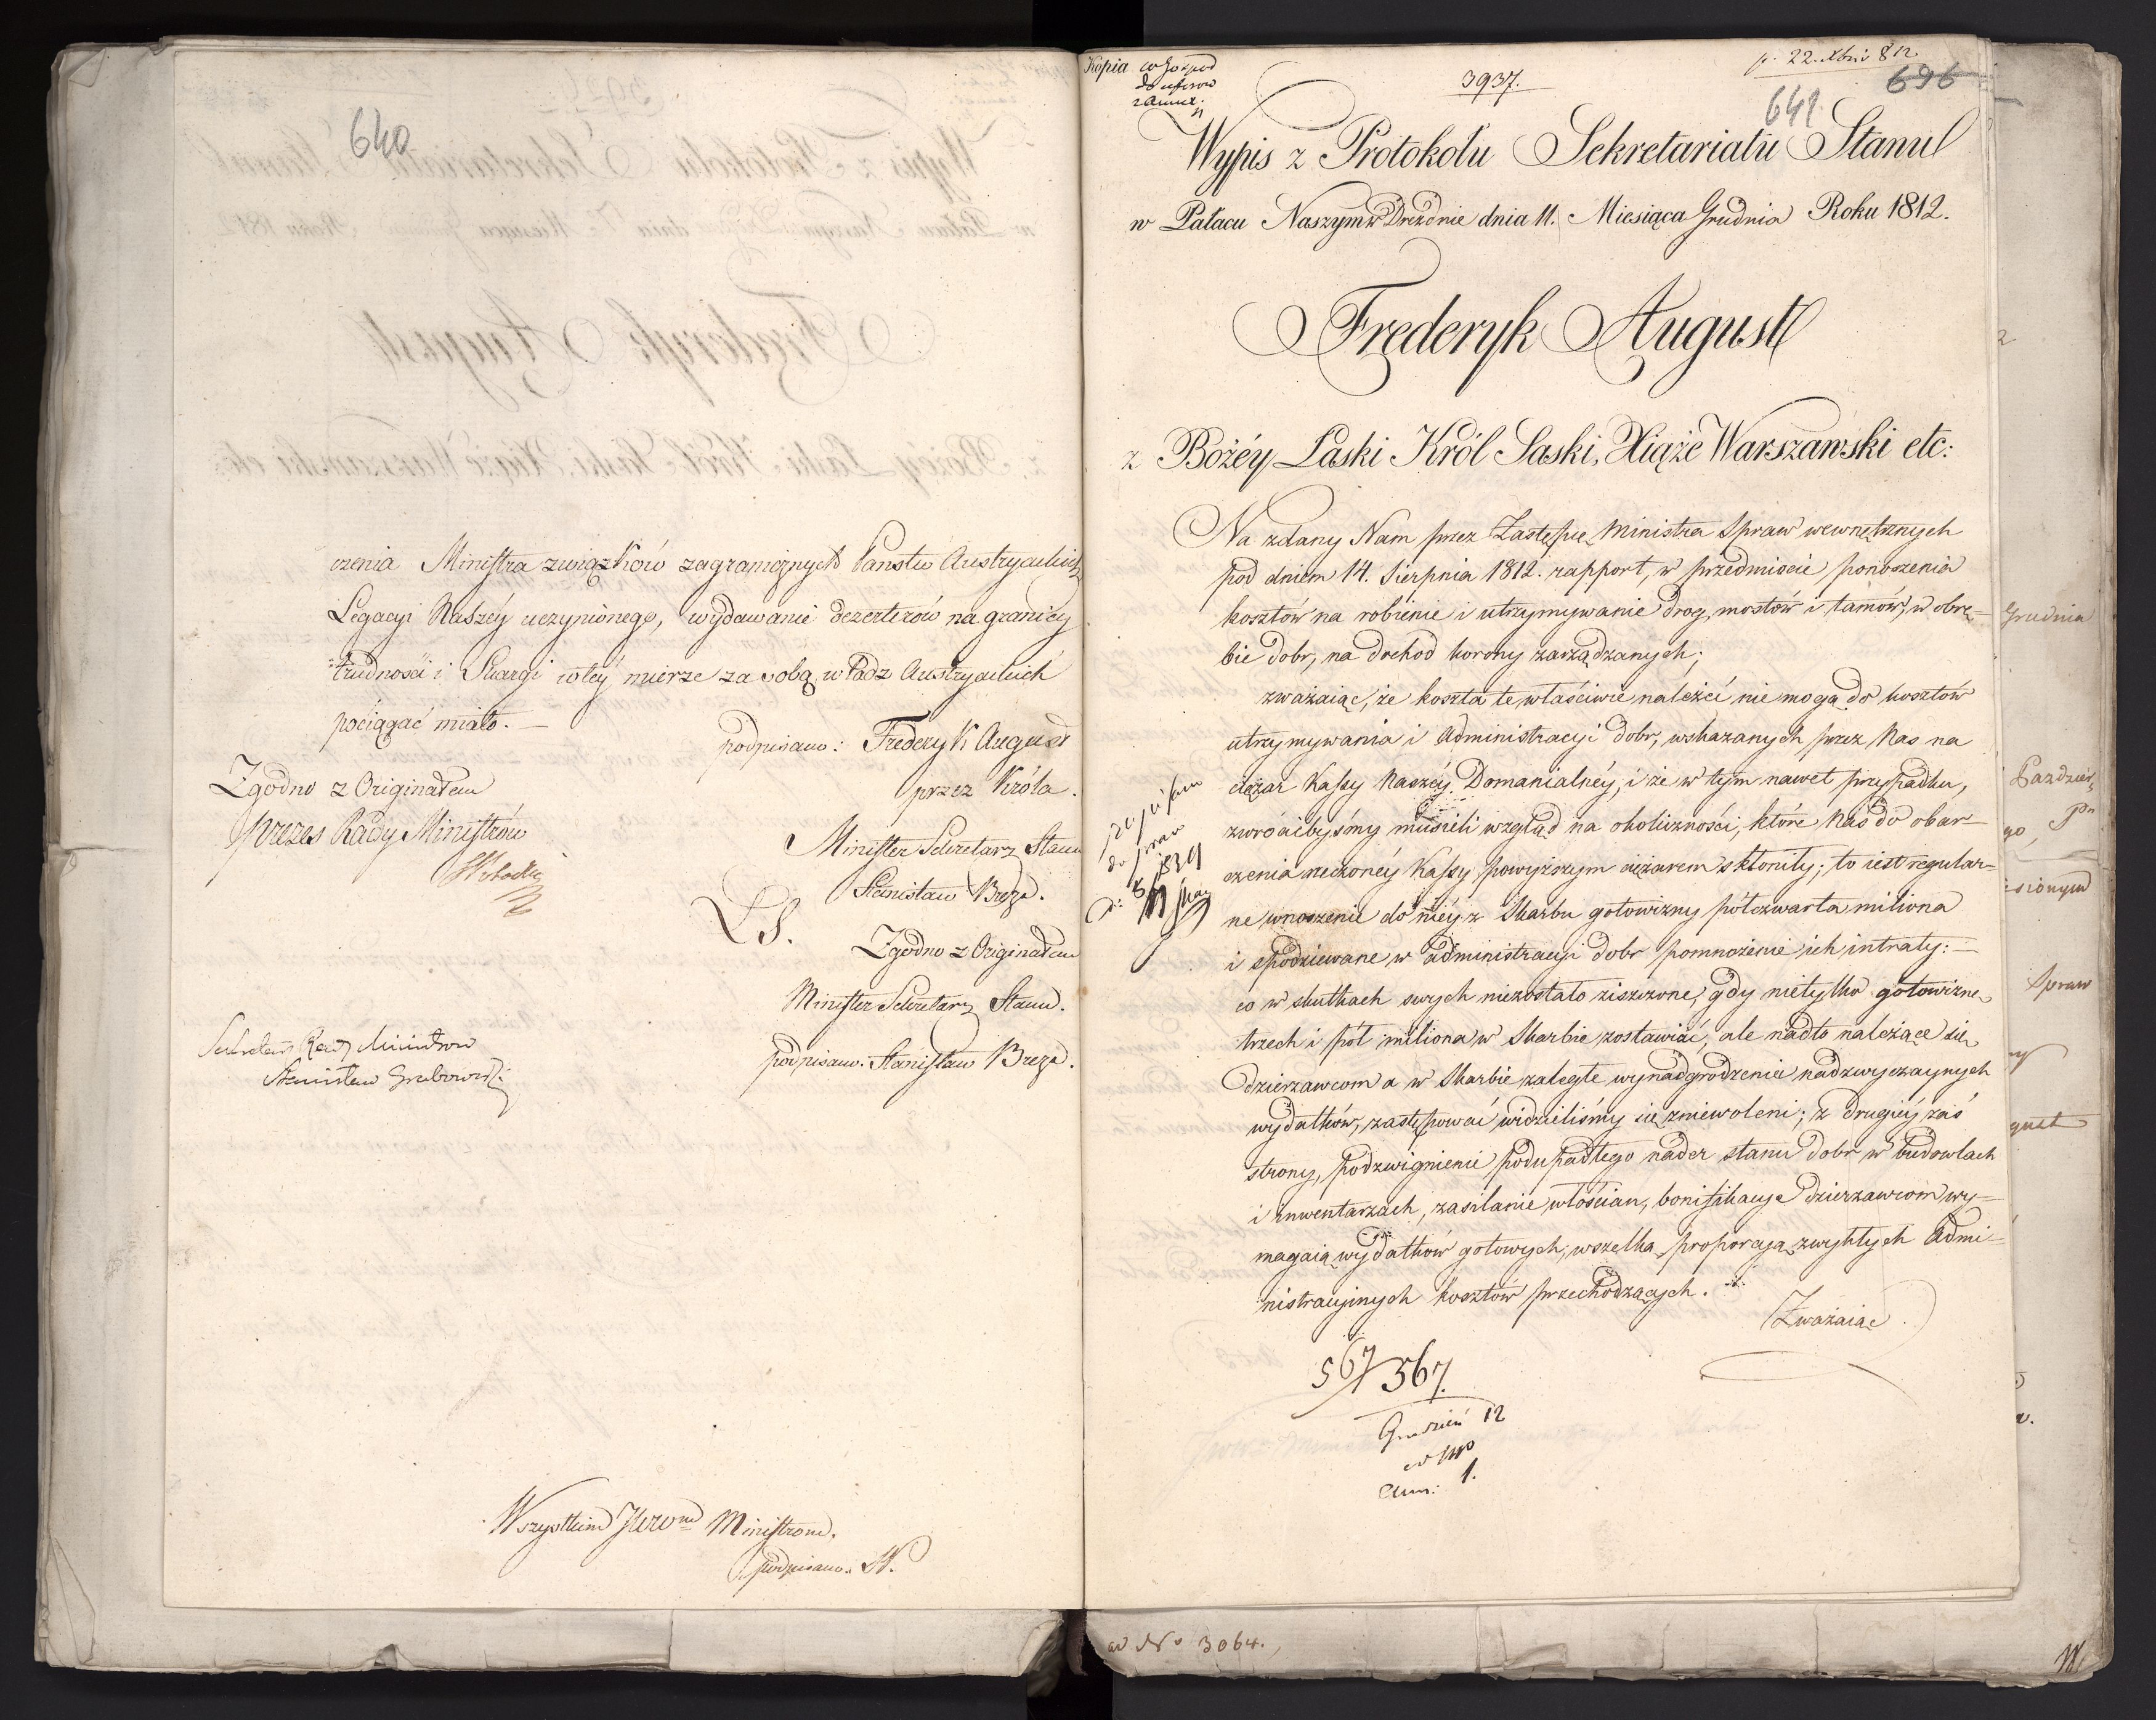 640
czenia Ministra związków zagranicznych Państw Austryackich
Legacyi Naszéy uczynionego, wydawanie dezerterów na granicy
trudności i Skargi w téy mierze za sobą władz Austryackich
pociągać miało. —
podpisano: Frederyk August
przez Króla.
Minister Sekretarz Stanu
Stanisław Breza.
LS.
Zgodno z Originałem
Minister Sekretarz Stanu.
podpisano. Stanisław Breza.
Zgodno z Originałem
Prezes Rady Ministrów
Sekretarz Rady Ministrów
Stanisław Grabowski
Wszystkim JW Ministrom.
podpisano. W.
Kopia
3937.
22. Xbris 812.
696
641
Wypis z Protokołu Sekretariatu Stanu
w Pałacu Naszym w Dreźdnie dnia 11. Miesiąca Grudnia Roku 1812.
Frederyk August
z Bożéy Łaski Król Saski, Xiąże Warszawski etc:
Na zdany Nam przez Zastępcę Ministra Spraw wewnętrznych
pod dniem 14. Sierpnia 1812. rapport, w przedmiocie ponoszenia
kosztów na robienie i utrzymywanie drog, mostów i tamów, w obrę-
bie dobr, na dochod korony zarządzanych;
zważaiąc, że koszta te właściwie należéć nie mogą do kosztów
utrzymywania i Administracyi dobr, wskazanych przez Nas na
ciężar Kassy Naszéy Domanialnéy, i że w tym nawet przypadku,
zwrócibyśmy musieli wzgląd na okoliczności, które Nas do obar-
czenia rzeczonéy Kassy powyższym ciężarem skłoniły; to iest regular-
ne wnoszenie do niéy z Skarbu gotowizny półczwarta miliona
i spodziewane w administracyi dobr pomnożenie ich intraty: —
co w skutkach swych niezostało ziszczone, gdy nietylko gotowiznę
trzech i pół miliona w Skarbie zostawiać, ale nadto należące się
dzierzawcom a w Skarbie zaległe wynadgrodzenia nadzwyczaynych
wydatków, zastępować widzieliśmy się zniewoleni; z drugiéy zaś
strony, podzwignienie podupadłego nader stanu dobr w budowlach
i inwentarzach, zasilanie włościan, bonifikacye dzierzawcom wy-
magaią wydatków gotowych, wszelką proporcyą zwykłych Admi-
nistracyjnych kosztów przechodzących.
Zważaiąc
567/567.
Grudzień 12
1.
Grudnia
Pazdzier
Spraw
gust
ad No 3064.